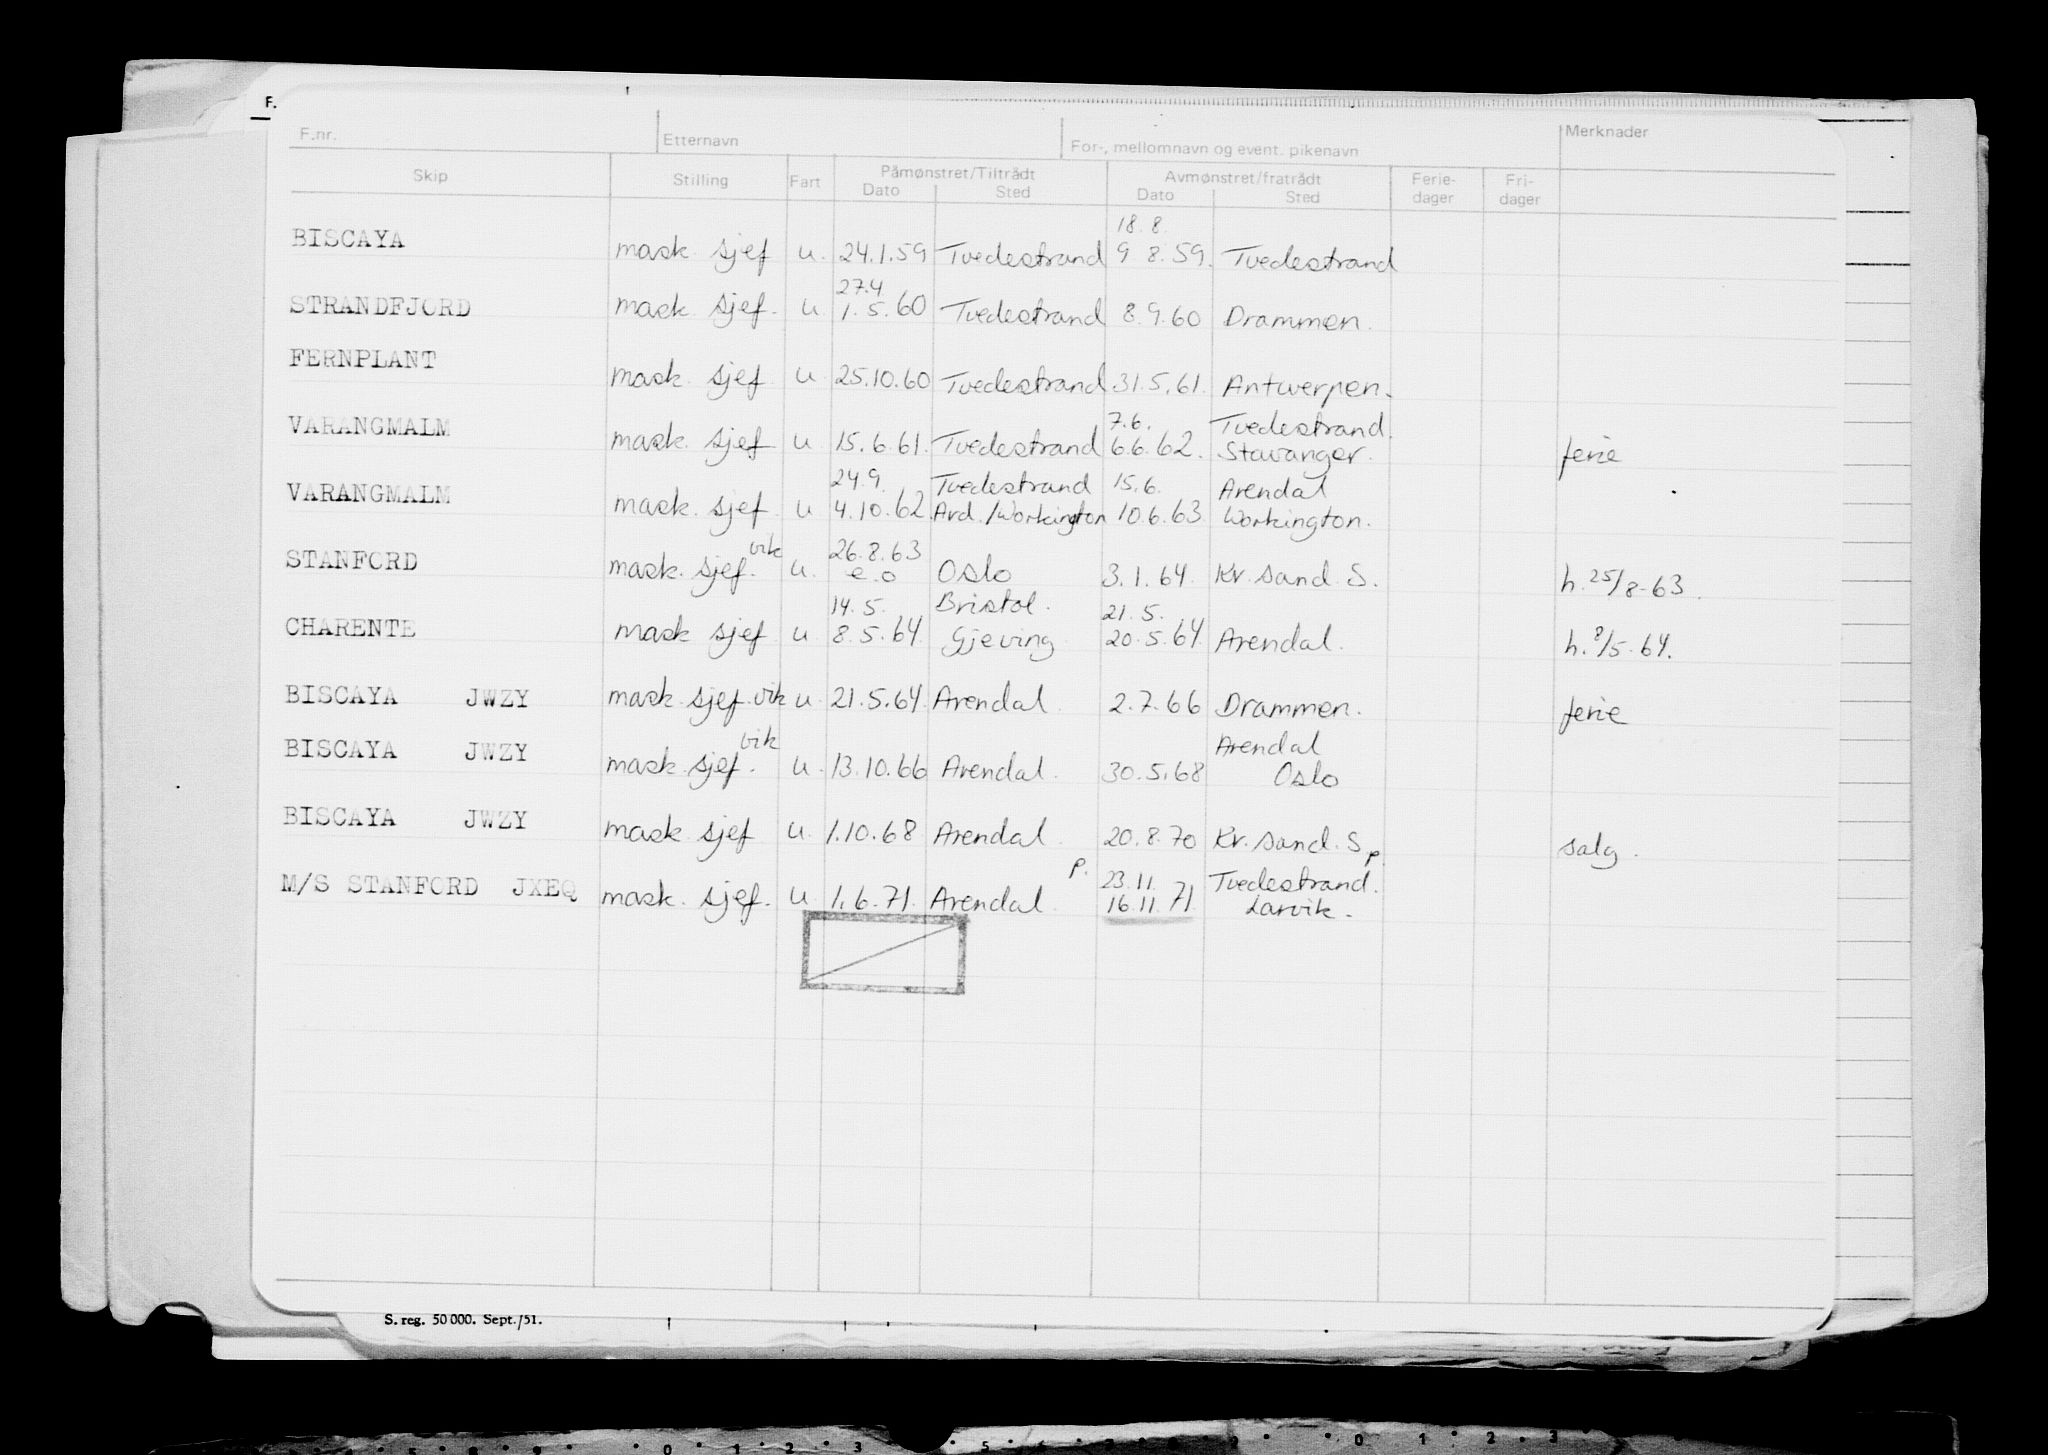 F.
F.nr. Etternavn For-, mellomnavn og event. pikenavn Merknader
Skip Stilling Fart Påmønstret/Tiltrådt Avmønstret/fratrådt Ferie- Fri-
Dato Sted Dato Sted dager dager
18.8.
BISCAYA mask. sjef u. 24.1.59 Tvedestrand 9 8.59. Tvedestrand
27.4
STRANDFJORD mask. sjef. u. 1.5.60 Tvedestrand 8.9.60 Drammen.
FERNPLANT mask. sjef u 25.10.60 Tvedestrand 31.5.61. Antwerpen.
7.6. Tvedestrand.
VARANGMALM mask. sjef u 15.6.61. Tvedestrand 6.6.62. Stavanger. ferie
24.9. Tvedestrand 15.6. Arendal
VARANGMALM mask. sjef u 4.10.62. Ard./Workington 10.6.63 Workington.
vik 26.8.63
STANFORD mask. sjef. u. e.o Oslo 3.1.64. Kr.sand. S. h. 25/8-63.
14.5. Bristol. 21.5.
CHARENTE mask sjef u 8.5.64. Gjeving 20.5.64. Arendal. h. 8/5-64.
BISCAYA JWZY mask. sjef. vik u. 21.5.64. Arendal 2.7.66 Drammen. ferie
vik Arendal
BISCAYA JWZY mask. sjef. u. 13.10.66 Arendal. 30.5.68 Oslo
BISCAYA JWZY mask. sjef u. 1.10.68 Arendal. 20.8.70 Kr.sand. S. salg.
p. 23.11. Tvedestrand. p.
M/S STANFORD JXEQ mask. sjef. u. 1.6.71. Arendal 16.11.71. Larvik.
S. reg. 50 000. Sept./51.